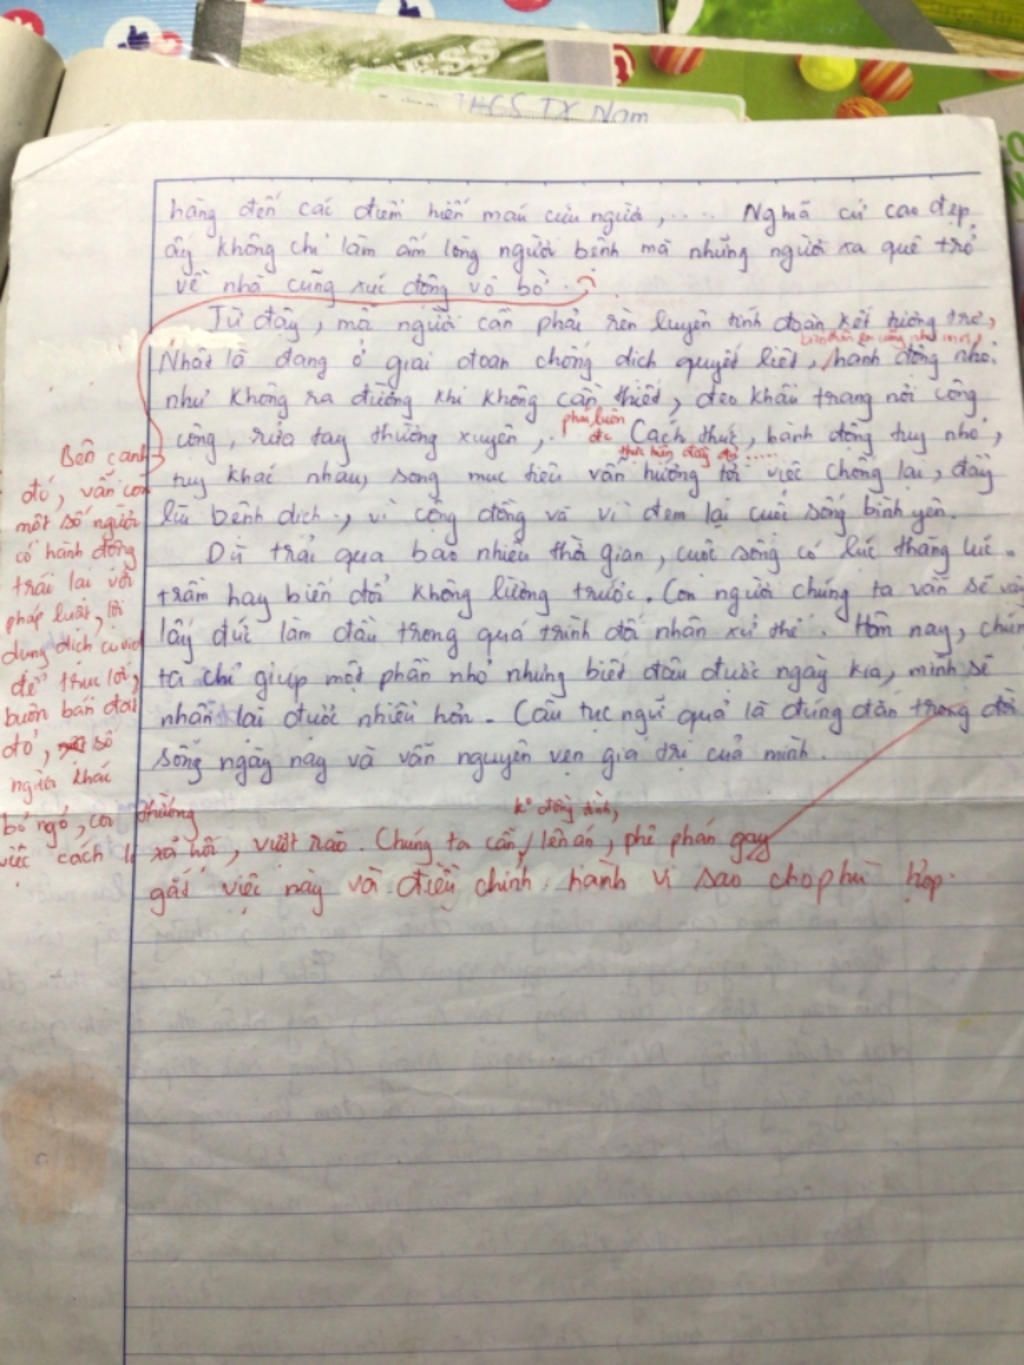 THCS TX Nam
hàng đến các điểm hiến máu cứu người, .... Nghĩa cử cao đẹp
ấy không chỉ làm ấm lòng người bệnh mà những người xa quê trở
về nhà cũng xúc động vô bờ.
Từ đây, mỗi người cần phải rèn luyện tính đoàn kết tương trợ,
Nhất là đang ở giai đoạn chống dịch quyết liệt, hành động nhỏ
như không ra đường khi không cần thiết, đeo khẩu trang nơi công
cộng, rửa tay thường xuyên, .
phải luôn
đc
Cách thức, hành động tuy nhỏ,
thực hiện đầy đủ .....
tuy khác nhau, song mục tiêu vẫn hướng tới việc chống lại, đẩy
lùi bệnh dịch, vì cộng đồng và vì đem lại cuộc sống bình yên.
Dù trải qua bao nhiêu thời gian, cuộc sống có lúc thăng lúc
trầm hay biến đổi không lường trước. Con người chúng ta vẫn sẽ
lấy đức làm đầu trong quá trình đối nhân xử thế. Hôm nay, chún
ta chỉ giúp một phần nhỏ nhưng biết đâu được ngày kia, mình sẽ
nhận lại được nhiều hơn. Câu tục ngữ quả là đúng đắn trong đời
sống ngày nay và vẫn nguyên vẹn giá trị của mình.
Bên cạnh
đó, vẫn còn
một số người
có hành động
trái lại với
pháp luật, lợi
dụng dịch covid
để trục lợi,
buôn bán đắt
đỏ, số
người khác
bỏ ngỏ, coi thường
việc cách li xã hội, vượt rào. Chúng ta cần lên án, phê phán gay
k° đồng tình,
gắt việc này và điều chỉnh hành vi sao cho phù hợp.